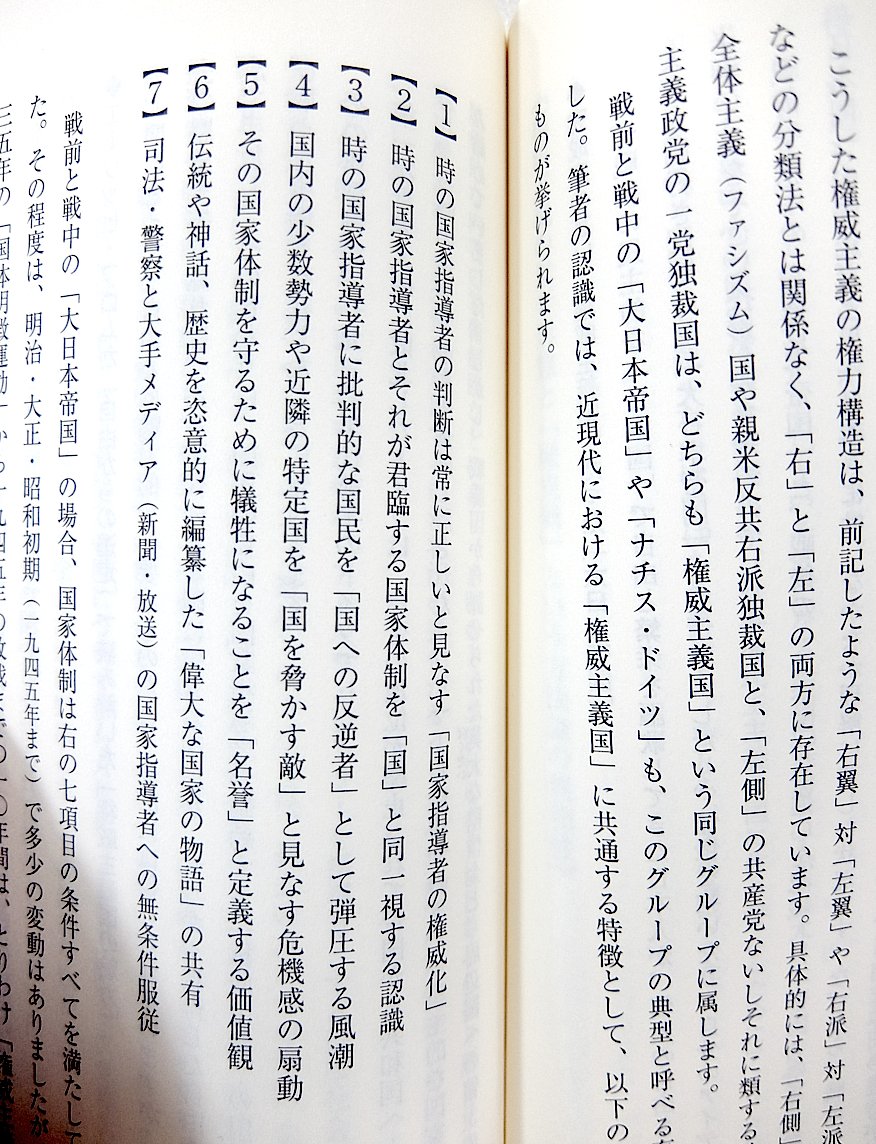 こうした権威主義の権力構造は、前記したような「右翼」対「左翼」や「右派」対「左派
などの分類法とは関係なく、「右」と「左」の両方に存在しています。具体的には、「右側」
全体主義（ファシズム）国や親米反共右派独裁国と、「左側」の共産党ないしそれに類する
主義政党の一党独裁国は、どちらも「権威主義国」という同じグループに属します。
戦前と戦中の「大日本帝国」や「ナチス・ドイツ」も、このグループの典型と呼べる
した。筆者の認識では、近現代における「権威主義国」に共通する特徴として、以下の
ものが挙げられます。
【1】時の国家指導者の判断は常に正しいと見なす「国家指導者の権威化」
【2】時の国家指導者とそれが君臨する国家体制を「国」と同一視する認識
【3】時の国家指導者に批判的な国民を「国への反逆者」として弾圧する風潮
【4】国内の少数勢力や近隣の特定国を「国を脅かす敵」と見なす危機感の扇動
【5】その国家体制を守るために犠牲になることを「名誉」と定義する価値観
【6】伝統や神話、歴史を恣意的に編纂した「偉大な国家の物語」の共有
【7】司法・警察と大手メディア（新聞・放送）の国家指導者への無条件服従
戦前と戦中の「大日本帝国」の場合、国家体制は右の七項目の条件すべてを満たして
た。その程度は、明治・大正・昭和初期（一九四五年まで）で多少の変動はありましたが
三五年の「国体明徴運動」から一九四五年の敗戦までの一〇年間は、とりわけ「権威主